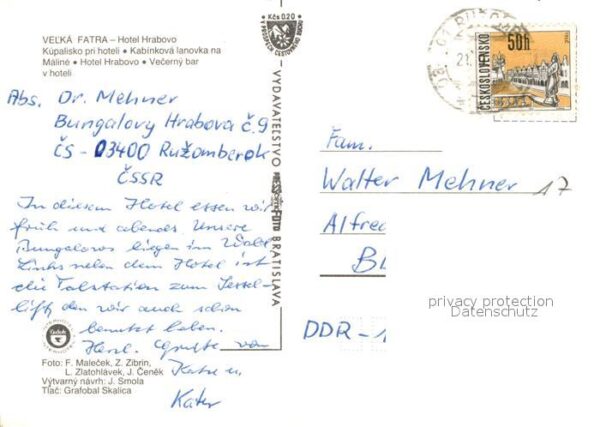 VEĽKÁ FATRA – Hotel Hrabovo
Kúpalisko pri hoteli • Kabínková lanovka na
Máliné • Hotel Hrabovo • Večerný bar
v hoteli
Kčs 0,20
Abs. Dr. Mehner
Bungalovy Hrabova č. 9
ČS - 03400 Ružomberok
ČSSR
In diesem Hotel essen wir
früh und abends. Unsere
Bungalows liegen im Wald
Links neben dem Hotel ist
die Talstation zum Sessel-
lift, den wir auch schon
benutzt haben.
Herzl. Grüße von
Käthe u.
Kater
Foto: F. Maleček, Z. Zibrin,
L. Zlatohlávek, J. Čeněk
Výtvarný návrh: J. Smola
Tlač: Grafobal Skalica
VYDAVATEĽSTVO
BRATISLAVA
ČESKOSLOVENSKO
50h
Fam.
Walter Mehner 17
Alfred
BL
DDR - 1
privacy protection
Datenschutz